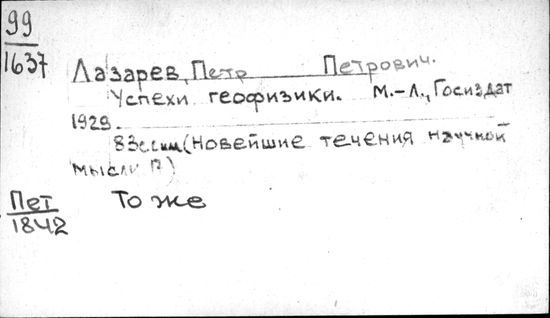 99
1637
Лазарев, Петр Петрович.
Успехи геофизики. М.-Л., Госиздат
1929.
83с. (Новейшие течения научной
мысли
Пет
1842
То же